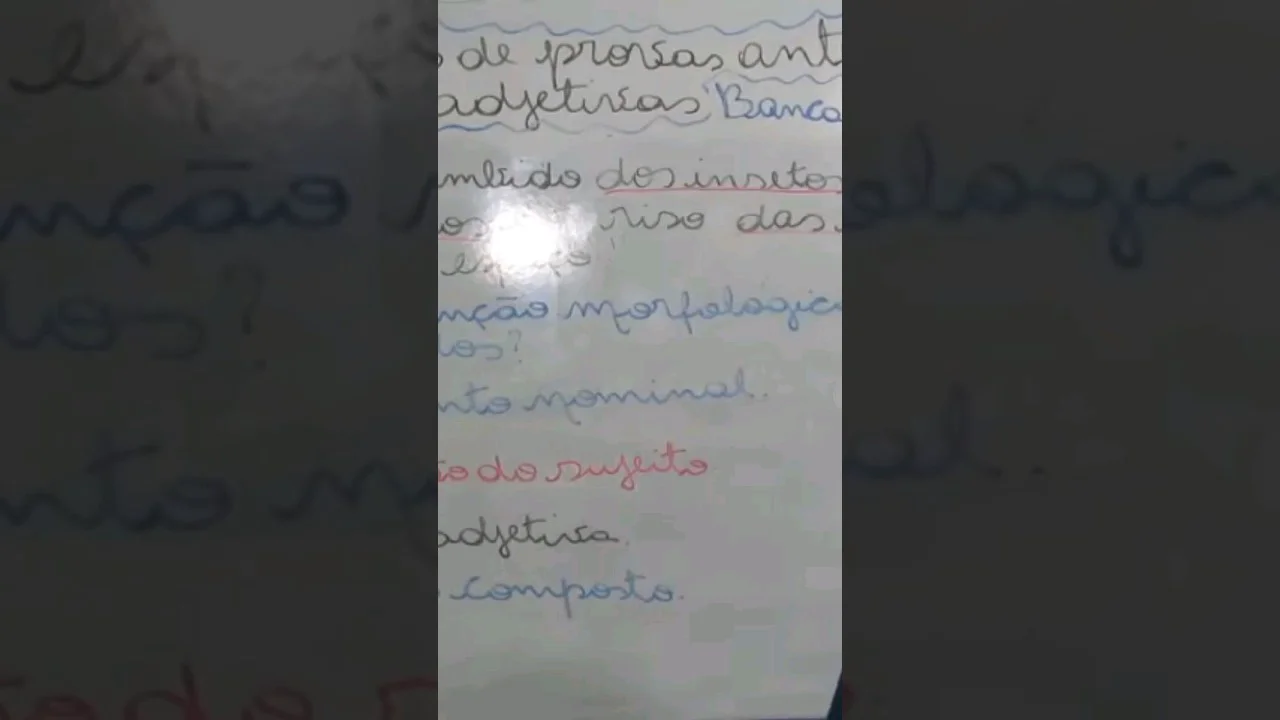 de provas ant
adjetivas Banca
mbido dos insetos
os riso das
espaço
nção morfológica
dos?
nto nominal.
ão do sujeito
adjetiva.
composto.